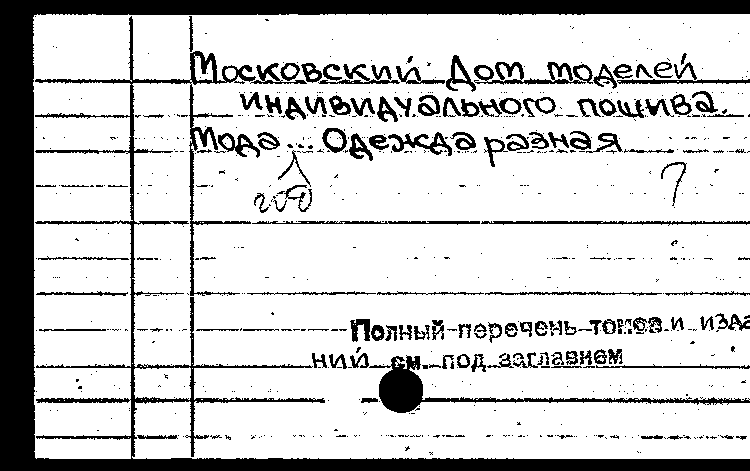 Московский Дом моделей
индивидуального пошива.
Мода ... Одежда разная
год ?
Полный перечень томов и изда
ний см. под заглавием